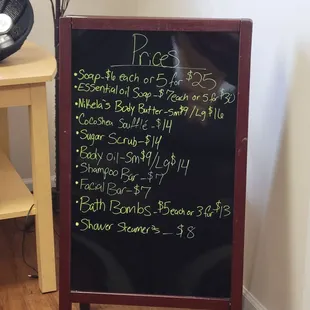 Prices
• Soap - $6 each or 5 for $25
• Essential oil Soap - $7 each or 5 for $30
• Nikela's Body Butter - Sm $9 / Lg $16
• CocoShea Soufflé - $14
• Sugar Scrub - $14
• Body Oil - Sm $9 / Lg $14
• Shampoo Bar - $7
• Facial Bar - $7
• Bath Bombs - $5 each or 3 for $13
• Shower Steamers - $8